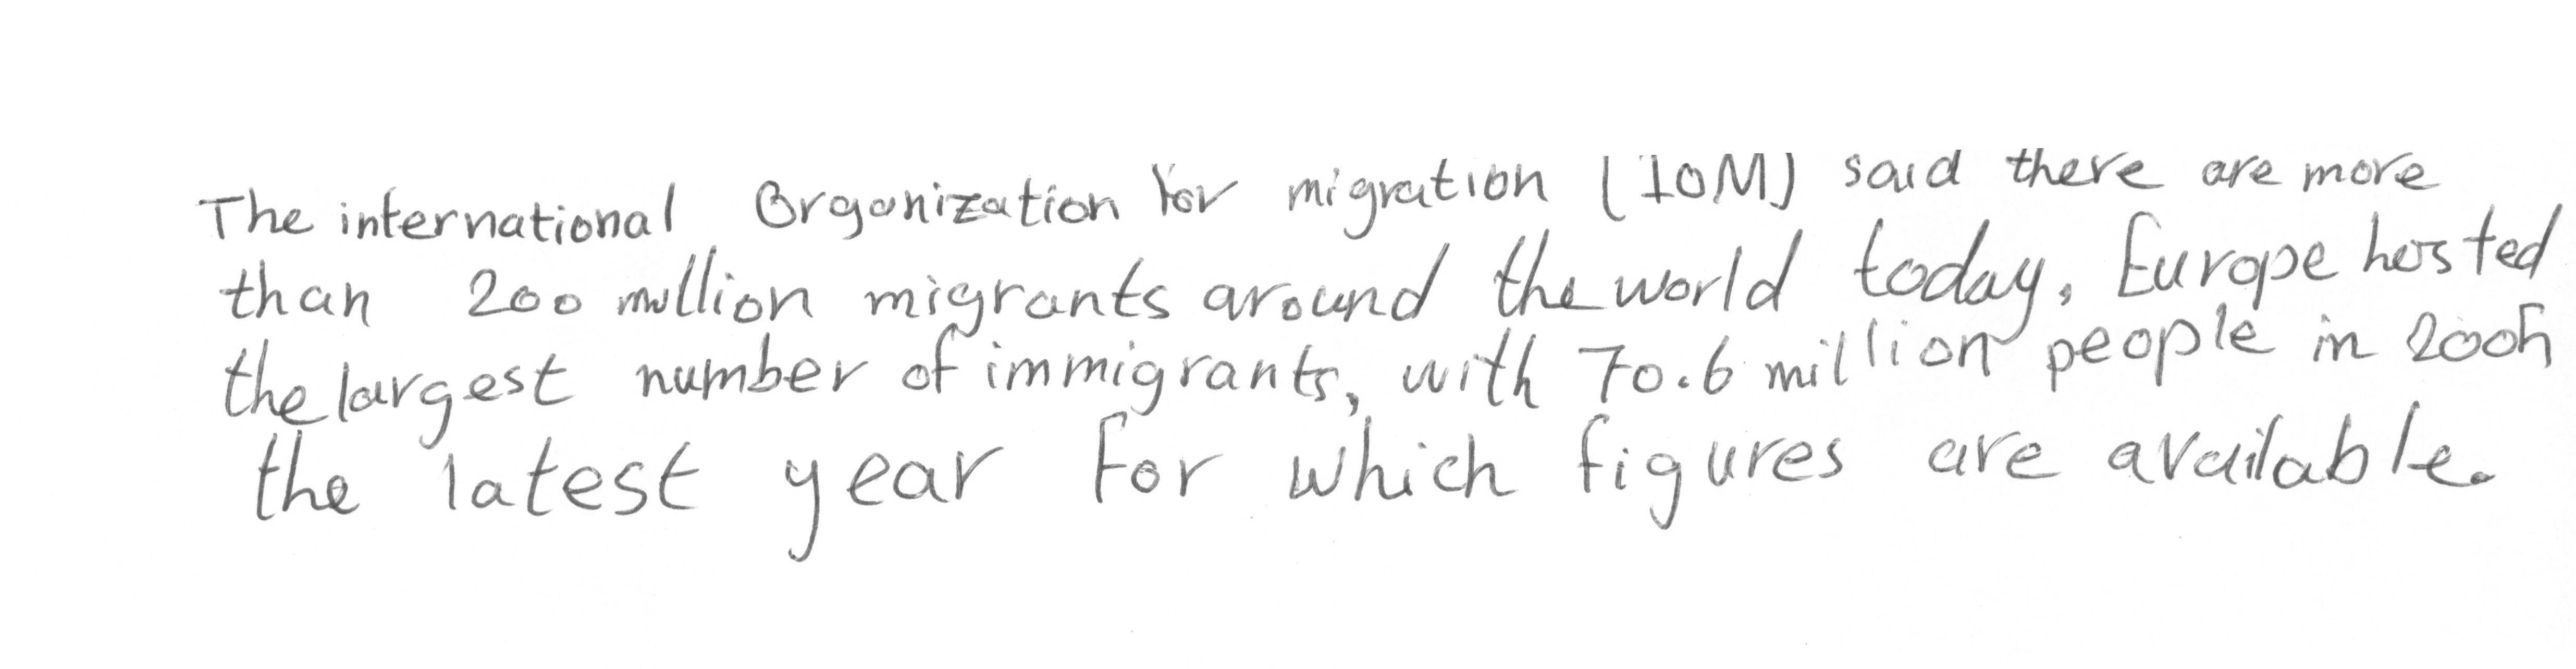 The international Organization for migration (IOM) said there are more
than 200 million migrants around the world today, Europe hosted
the largest number of immigrants, with 70.6 million people in 2005
the latest year for which figures are available.